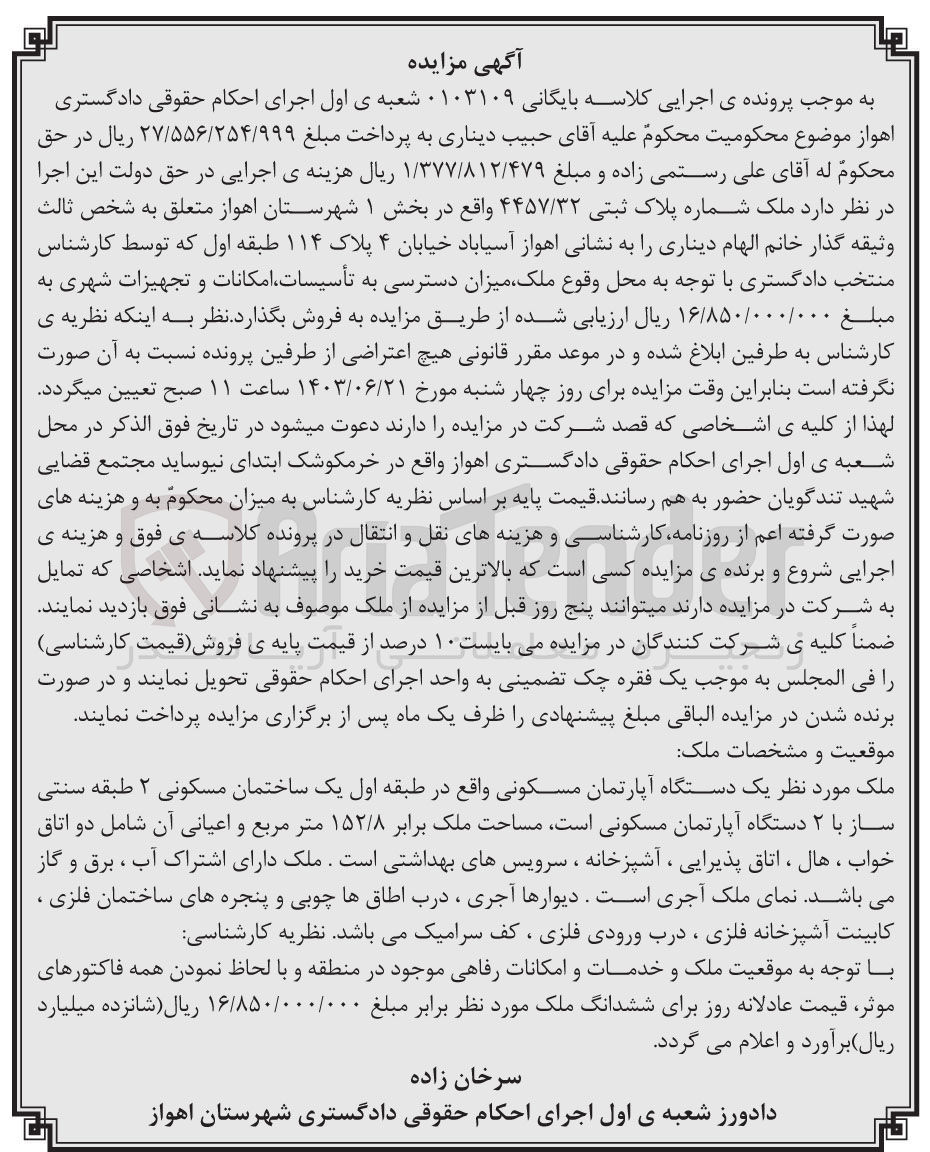 آگهی مزایده
به موجب پرونده ی اجرایی کلاسه بایگانی ۰۱۰۳۱۰۹ شعبه ی اول اجرای احکام حقوقی دادگستری
اهواز موضوع محکومیت محکومٌ علیه آقای حبیب دیناری به پرداخت مبلغ ۲۷/۵۵۶/۲۵۴/۹۹۹ ریال در حق
محکومٌ له آقای علی رستمی زاده و مبلغ ۱/۳۷۷/۸۱۲/۴۷۹ ریال هزینه ی اجرایی در حق دولت این اجرا
در نظر دارد ملک شماره پلاک ثبتی ۴۴۵۷/۳۲ واقع در بخش ۱ شهرستان اهواز متعلق به شخص ثالث
وثیقه گذار خانم الهام دیناری را به نشانی اهواز آسیاباد خیابان ۴ پلاک ۱۱۴ طبقه اول که توسط کارشناس
منتخب دادگستری با توجه به محل وقوع ملک،میزان دسترسی به تأسیسات،امکانات و تجهیزات شهری به
مبلغ ۱۶/۸۵۰/۰۰۰/۰۰۰ ریال ارزیابی شده از طریق مزایده به فروش بگذارد.نظر به اینکه نظریه ی
کارشناس به طرفین ابلاغ شده و در موعد مقرر قانونی هیچ اعتراضی از طرفین پرونده نسبت به آن صورت
نگرفته است بنابراین وقت مزایده برای روز چهار شنبه مورخ ۱۴۰۳/۰۶/۲۱ ساعت ۱۱ صبح تعیین میگردد.
لهذا از کلیه ی اشخاصی که قصد شرکت در مزایده را دارند دعوت میشود در تاریخ فوق الذکر در محل
شعبه ی اول اجرای احکام حقوقی دادگستری اهواز واقع در خرمکوشک ابتدای نیوساید مجتمع قضایی
شهید تندگویان حضور به هم رسانند.قیمت پایه بر اساس نظریه کارشناس به میزان محکومٌ به و هزینه های
صورت گرفته اعم از روزنامه،کارشناسی و هزینه های نقل و انتقال در پرونده کلاسه ی فوق و هزینه ی
اجرایی شروع و برنده ی مزایده کسی است که بالاترین قیمت خرید را پیشنهاد نماید. اشخاصی که تمایل
به شرکت در مزایده دارند میتوانند پنج روز قبل از مزایده از ملک موصوف به نشانی فوق بازدید نمایند.
ضمناً کلیه ی شرکت کنندگان در مزایده می بایست۱۰ درصد از قیمت پایه ی فروش(قیمت کارشناسی)
را فی المجلس به موجب یک فقره چک تضمینی به واحد اجرای احکام حقوقی تحویل نمایند و در صورت
برنده شدن در مزایده الباقی مبلغ پیشنهادی را ظرف یک ماه پس از برگزاری مزایده پرداخت نمایند.
موقعیت و مشخصات ملک:
ملک مورد نظر یک دستگاه آپارتمان مسکونی واقع در طبقه اول یک ساختمان مسکونی ۲ طبقه سنتی
ساز با ۲ دستگاه آپارتمان مسکونی است، مساحت ملک برابر ۱۵۲/۸ متر مربع و اعیانی آن شامل دو اتاق
خواب ، هال ، اتاق پذیرایی ، آشپزخانه ، سرویس های بهداشتی است . ملک دارای اشتراک آب ، برق و گاز
می باشد. نمای ملک آجری است . دیوارها آجری ، درب اطاق ها چوبی و پنجره های ساختمان فلزی ،
کابینت آشپزخانه فلزی ، درب ورودی فلزی ، کف سرامیک می باشد. نظریه کارشناسی:
با توجه به موقعیت ملک و خدمات و امکانات رفاهی موجود در منطقه و با لحاظ نمودن همه فاکتورهای
موثر، قیمت عادلانه روز برای ششدانگ ملک مورد نظر برابر مبلغ ۱۶/۸۵۰/۰۰۰/۰۰۰ ریال(شانزده میلیارد
ریال)برآورد و اعلام می گردد.
سرخان زاده
دادورز شعبه ی اول اجرای احکام حقوقی دادگستری شهرستان اهواز
AriaTender
زنجیره معاملاتی آریاتندر